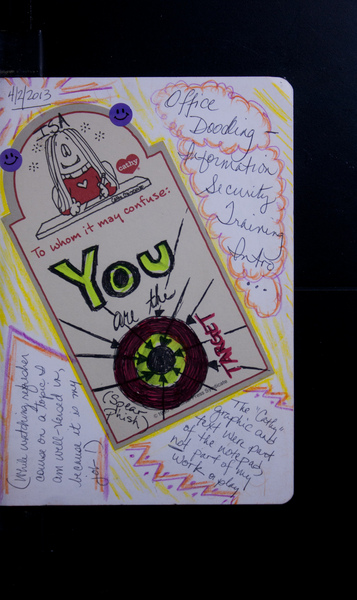 4/2/2013
Office
Doodling -
Information
Security
Training
Intro
...
cathy
To whom it may confuse:
You
are the
TARGET
(Spear
Phish)
(While watching refresher
course on a topic I
am well-versed in,
because it is my
job!)
The "Cathy"
graphic and
text were part
of the notepad,
not part of my
work aday